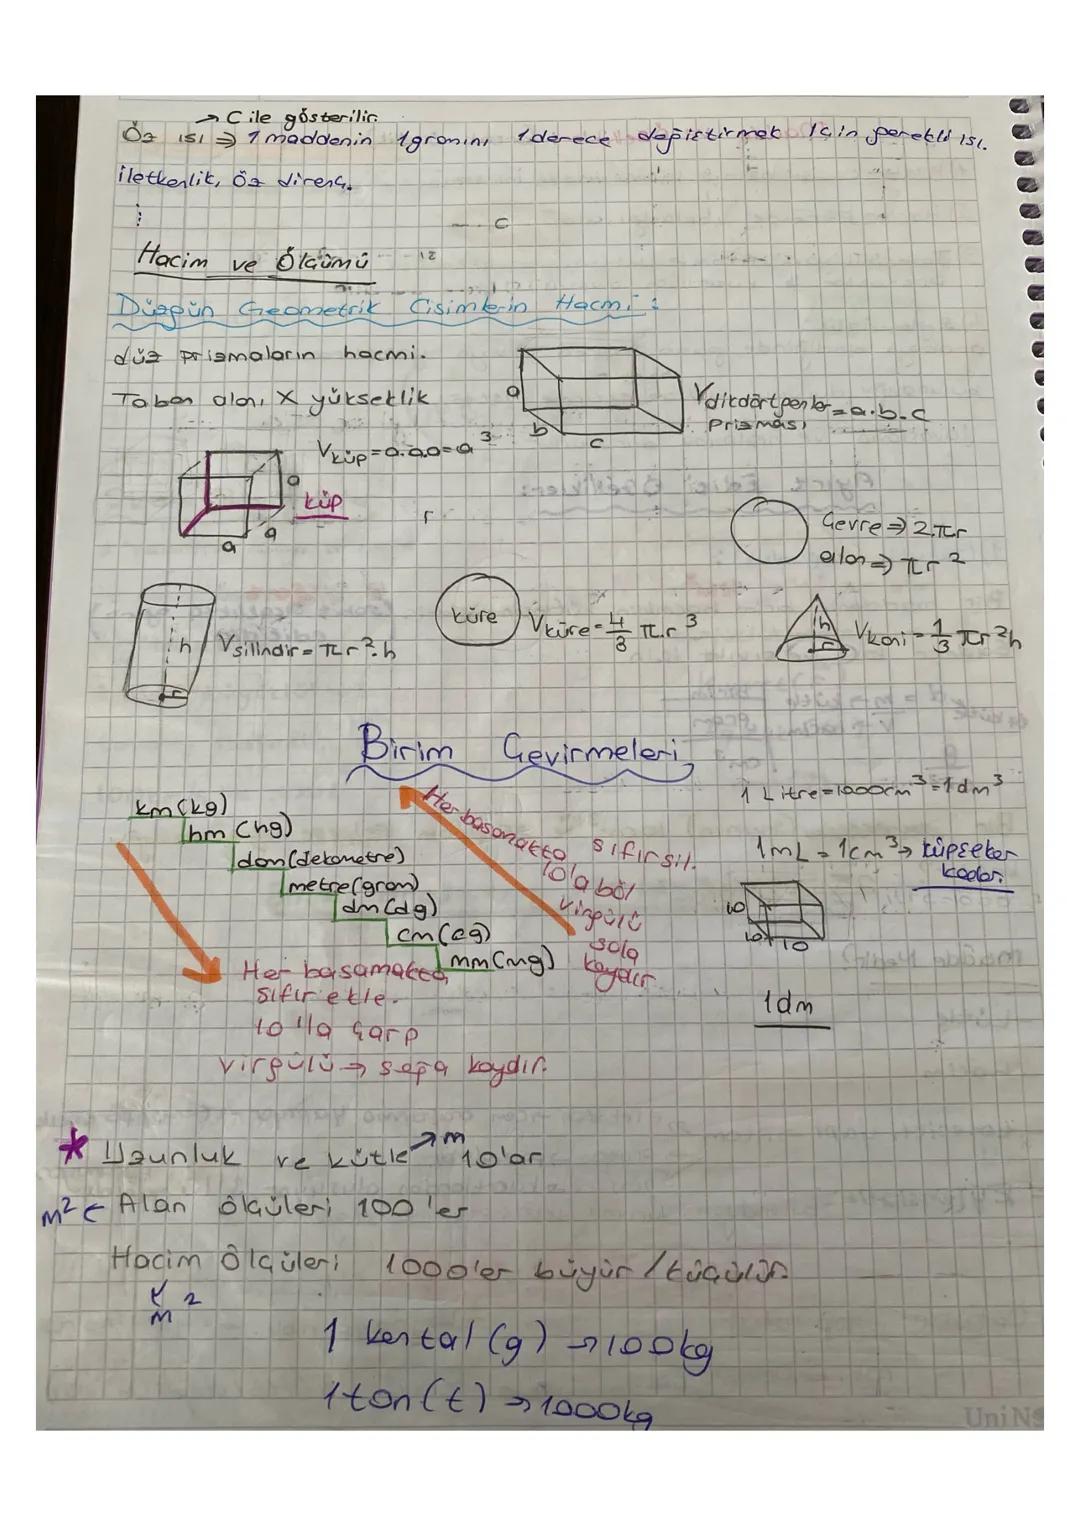 → C ile gösterilir.
Öz ısı ⇒ 1 maddenin 1gramını 1derece değiştirmek için gerekli ısı.
iletkenlik, öz direnç.
⋮
c
Hacim ve Ölçümü
12
Düzgün Geometrik Cisimlerin Hacmi:
düz prizmaların hacmi.
Taban alanı X yükseklik
a
b
c
Vdikdörtgenler = a.b.c
Prizması
Vküp = a.a.a = a³
a
a
a
küp
r
Çevre ⇒ 2.πr
alan ⇒ πr²
h
r
Vsilindir = πr².h
küre
Vküre = 4/3 π.r³
h
r
Vkoni = 1/3 πr²h
Birim Çevirmeleri
1 Litre = 1000cm³ = 1dm³
1mL = 1cm³ → küpşeker
kadar.
km (kg)
hm (hg)
dam (dekametre)
metre (gram)
dm (dg)
cm (cg)
mm (mg)
Her basamakta sıfır sil.
10'a böl
virgülü
sola
kaydır
10
10
10
1dm
Her basamakta
sıfır ekle.
10'la çarp
virgülü → sağa kaydır.
* Uzunluk ve kütle → m 10'ar
m² ← Alan ölçüleri 100'er
Hacim ölçüleri 1000'er büyür / küçülür.
m²
1 kental (g) → 100kg
1 ton (t) → 1000kg